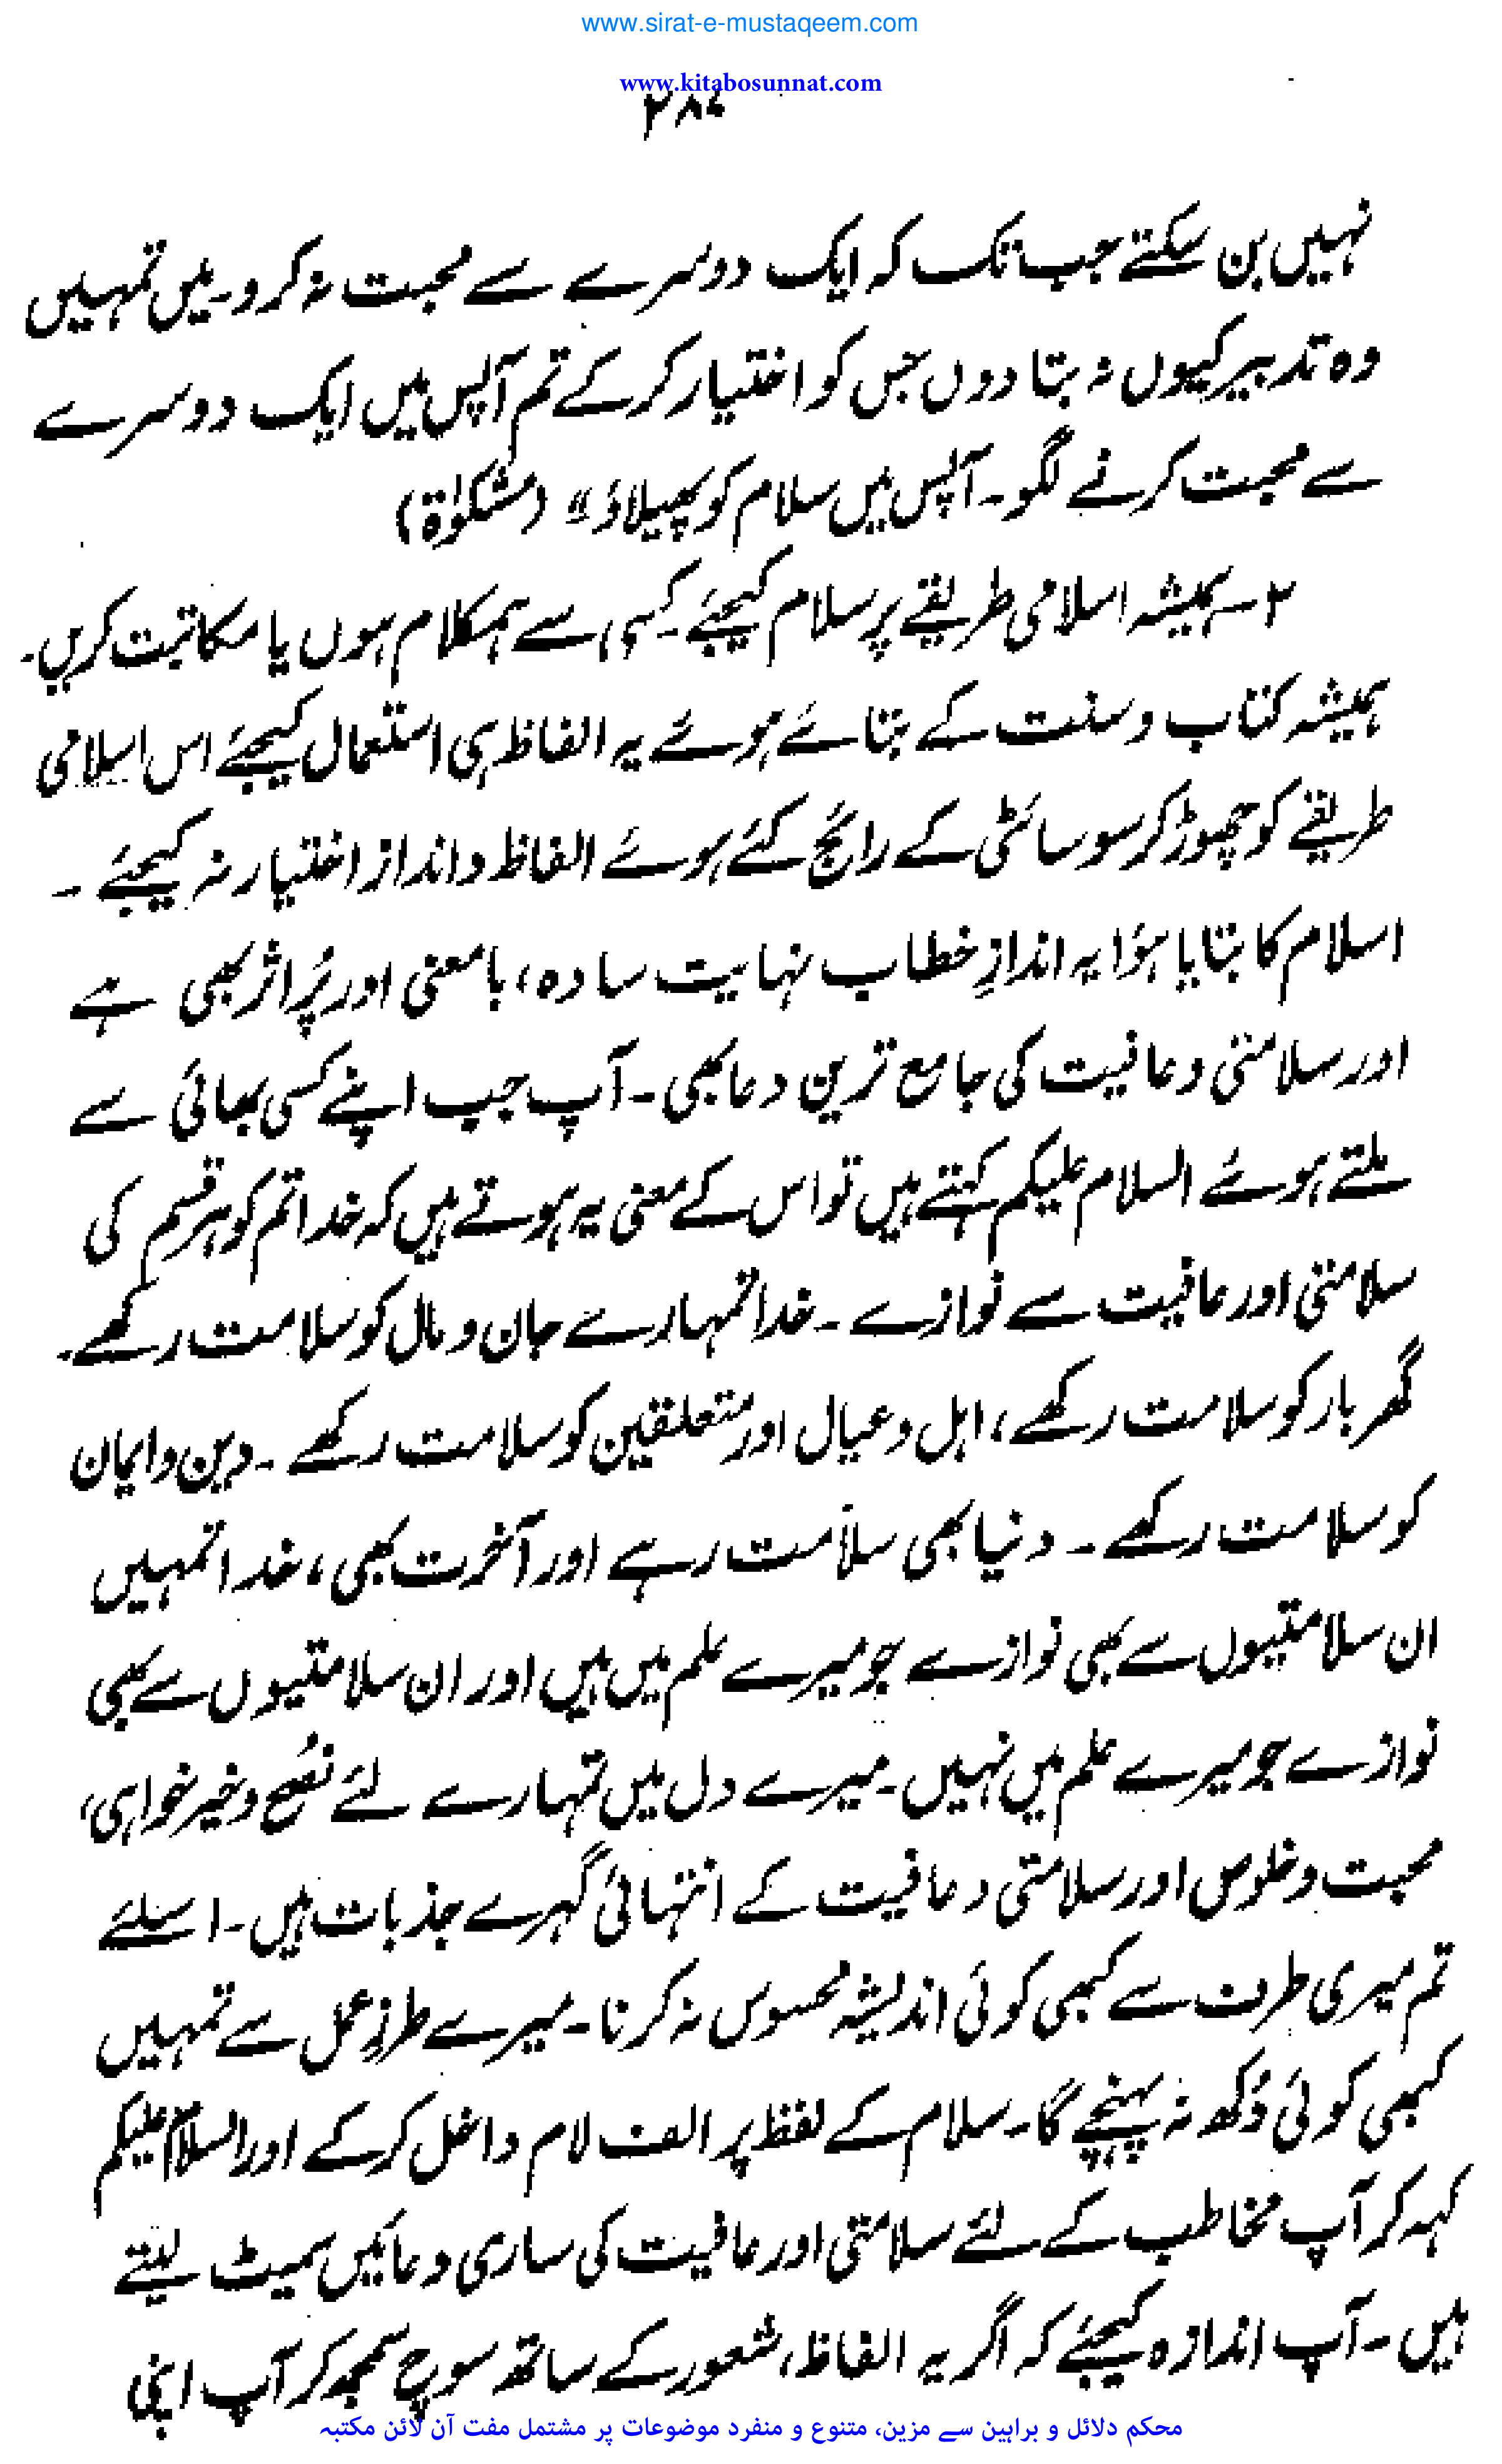 www.sirat-e-mustaqeem.com
www.kitabosunnat.com
۲۸۷
نہیں بن سکتے جب تک کہ ایک دوسرے سے محبت نہ کرو۔ میں تمہیں
وہ تدبیر کیوں نہ بتا دوں جس کو اختیار کر کے تم آپس میں ایک دوسرے
سے محبت کرنے لگو۔ آپس میں سلام کو پھیلاؤ" (مشکوٰۃ)
۲۔ ہمیشہ اسلامی طریقے پر سلام کیجئے۔ کسی سے ہمکلام ہوں یا مکاتبت کریں۔
ہمیشہ کتاب و سنت کے بتائے ہوئے یہ الفاظ ہی استعمال کیجئے اس اسلامی
طریقے کو چھوڑ کر سوسائٹی کے رائج کئے ہوئے الفاظ و انداز اختیار نہ کیجئے ۔
اسلام کا بتایا ہؤا یہ اندازِ خطاب نہایت سادہ، بامعنی اور پُر اثر بھی ہے
اور سلامتی و عافیت کی جامع ترین دعا بھی۔ آپ جب اپنے کسی بھائی سے
ملتے ہوئے السلام علیکم کہتے ہیں تو اس کے معنی یہ ہوتے ہیں کہ خدا تم کو ہر قسم کی
سلامتی اور عافیت سے نوازے ۔ خدا تمہارے جان و مال کو سلامت رکھے۔
گھر بار کو سلامت رکھے، اہل و عیال اور متعلقین کو سلامت رکھے ۔ دین و ایمان
کو سلامت رکھے ۔ دنیا بھی سلامت رہے اور آخرت بھی، خدا تمہیں
ان سلامتیوں سے بھی نوازے جو میرے علم میں ہیں اور ان سلامتیوں سے بھی
نوازے جو میرے علم میں نہیں۔ میرے دل میں تمہارے لئے نصُح و خیر خواہی،
محبت و خلوص اور سلامتی و عافیت کے انتہائی گہرے جذبات ہیں۔ اسلئے
تم میری طرف سے کبھی کوئی اندیشہ محسوس نہ کرنا۔ میرے طرزِ عمل سے تمہیں
کبھی کوئی دُکھ نہ پہنچے گا۔ سلام کے لفظ پر الف لام داخل کر کے اور السلام علیکم
کہہ کر آپ مخاطب کے لئے سلامتی اور عافیت کی ساری دعائیں سمیٹ لیتے
ہیں ۔ آپ اندازہ کیجئے کہ اگر یہ الفاظ، شعور کے ساتھ سوچ سمجھ کر آپ اپنی
محکم دلائل و براہین سے مزین، متنوع و منفرد موضوعات پر مشتمل مفت آن لائن مکتبہ